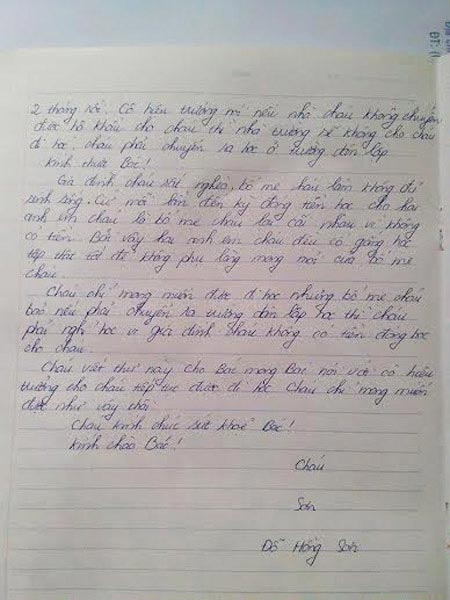 2 tháng rồi. Cô hiệu trưởng nói nếu nhà cháu không chuyển
được hộ khẩu cho cháu thì nhà trường sẽ không cho cháu
đi học, cháu phải chuyển ra học ở trường dân lập
Kính thưa Bác!
Gia đình cháu rất nghèo, bố mẹ cháu làm không đủ
sinh sống. Cứ mỗi lần đến kỳ đóng tiền học cho hai
anh em cháu là bố mẹ cháu lại cãi nhau vì không
có tiền. Bởi vậy hai anh em cháu đều cố gắng học
tập thật tốt để không phụ lòng mong mỏi của bố mẹ
cháu.
Cháu chỉ mong muốn được đi học nhưng bố mẹ cháu
bảo nếu phải chuyển ra trường dân lập học thì cháu
phải nghỉ học vì gia đình cháu không có tiền đóng học
cho cháu.
Cháu viết thư này cho Bác mong Bác nói với cô hiệu
trưởng cho cháu tiếp tục được đi học. Cháu chỉ mong muốn
được như vậy thôi.
Cháu kính chúc sức khoẻ Bác!
Kính chào Bác!
Cháu
Sơn
Đỗ Hồng Sơn